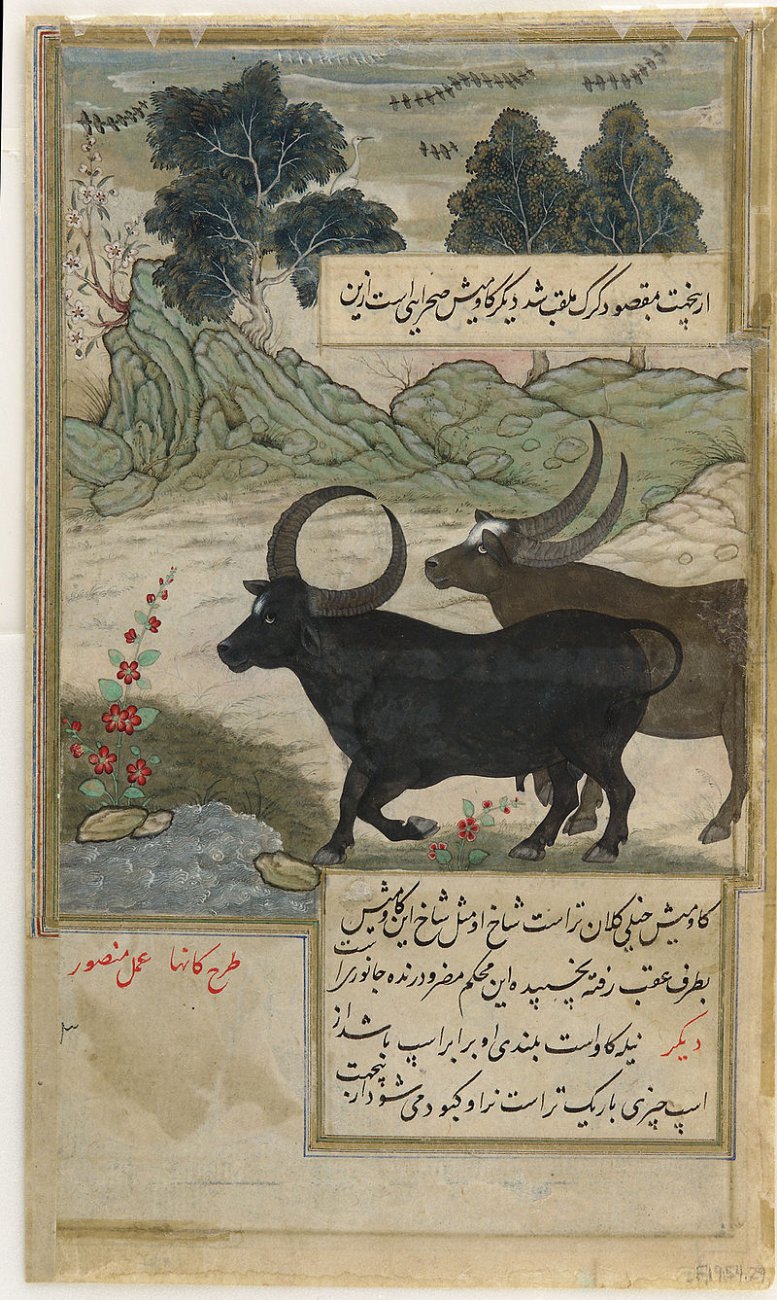 ازینجهت بمقصود کرک ملقب شد دیگر کاومیش صحرایی است ازین
کاومیش خیلی کلان تر است شاخ او مثل شاخ این کاومیش
بطرف عقب رفته نچسپیده این محکم مضر و درنده جانوری است
دیگر نیله کاو است بلندی او برابر اسپ باشد از
اسپ چیزی باریک تر است نر او کبود می شود ازینجهت
طرح کانها عمل منصور
F1954.29